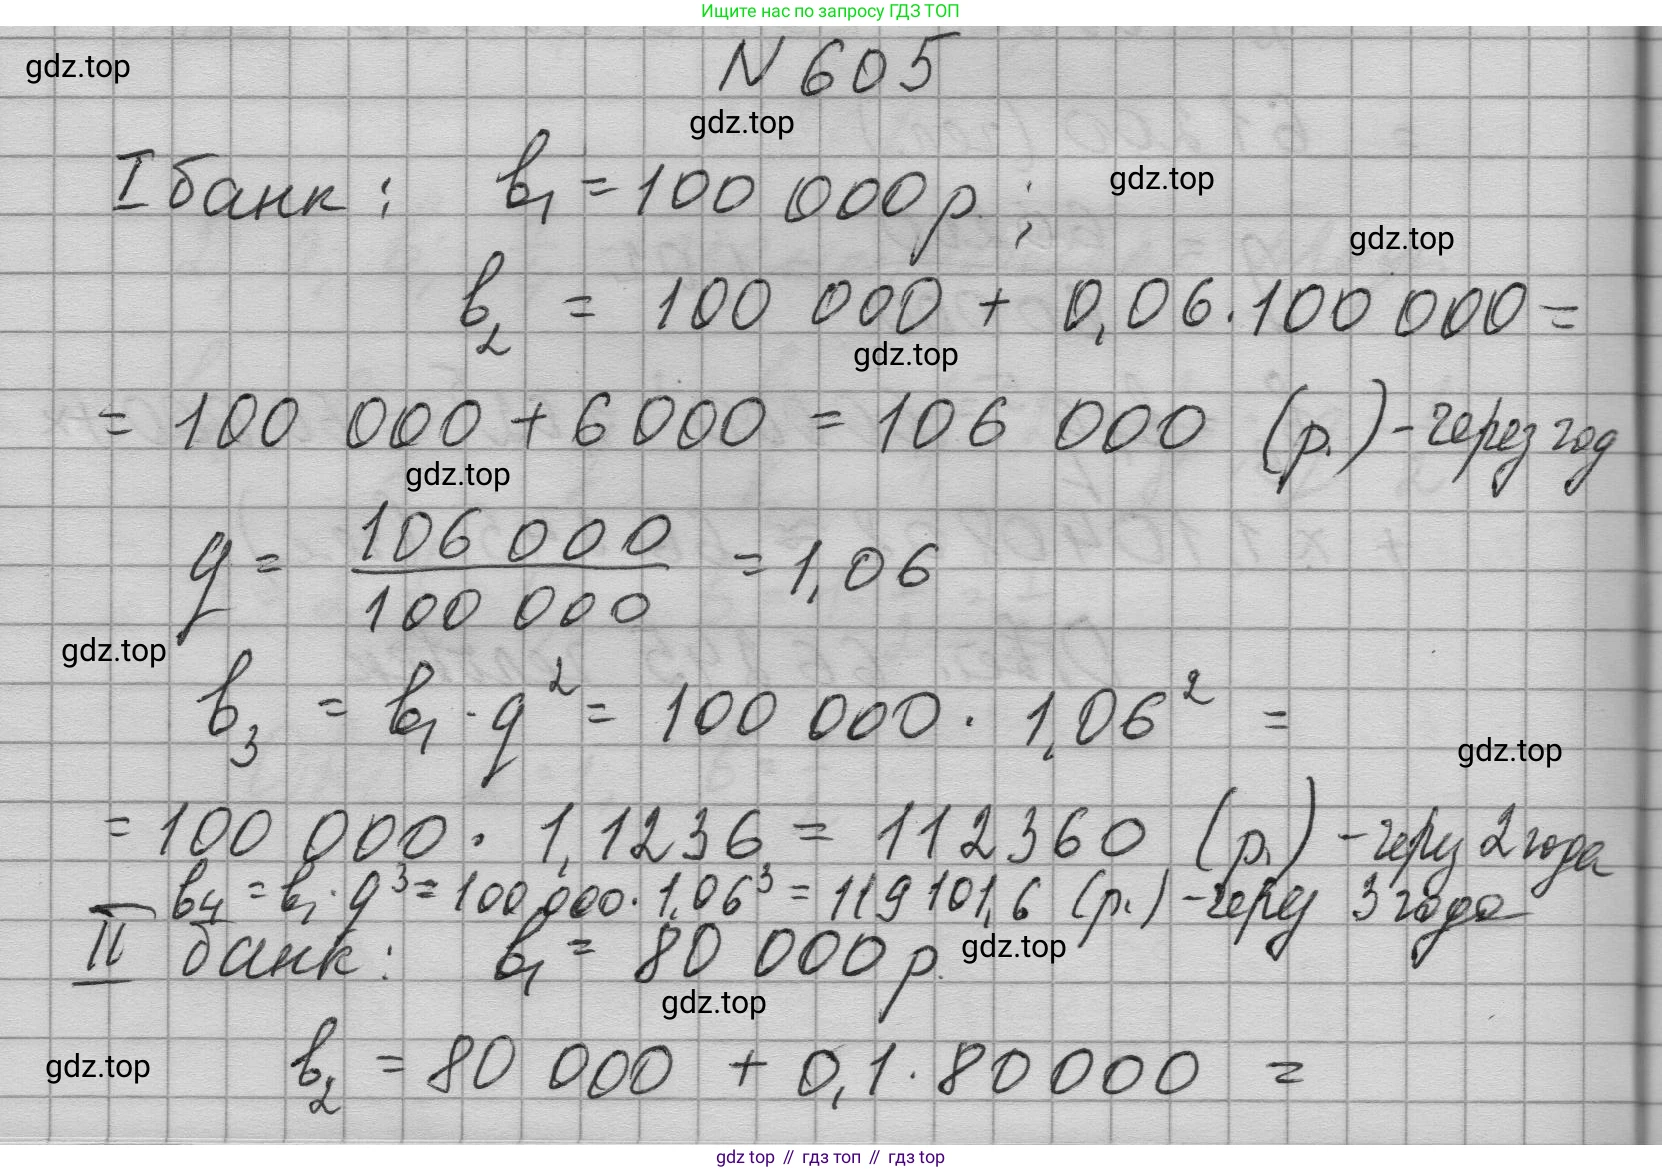 Ищите нас по запросу ГДЗ ТОП
gdz.top
N 605
gdz.top
I банк: b₁ = 100 000 р.;
gdz.top
gdz.top
b₂ = 100 000 + 0,06 · 100 000 =
gdz.top
= 100 000 + 6 000 = 106 000 (р.) - через год
gdz.top
q = 106 000 / 100 000 = 1,06
gdz.top
b₃ = b₁ · q² = 100 000 · 1,06² =
gdz.top
= 100 000 · 1,1236 = 112360 (р.) - через 2 года
b₄ = b₁ · q³ = 100 000 · 1,06³ = 119 101,6 (р.) - через 3 года
II банк: b₁ = 80 000 р.
gdz.top
gdz.top
b₂ = 80 000 + 0,1 · 80000 =
gdz.top
gdz top // гдз топ // гдз top